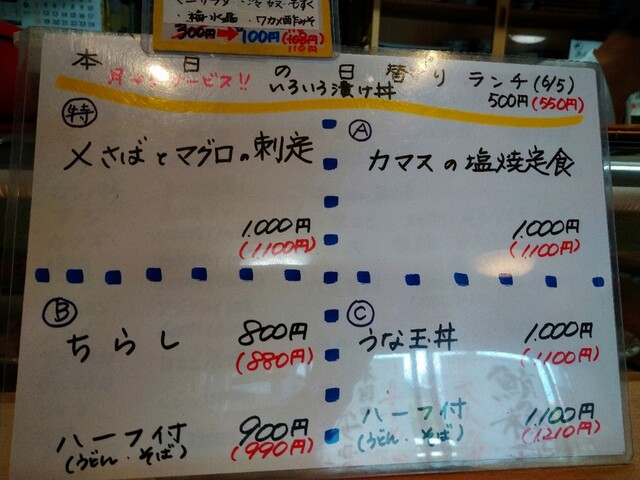 ミニサラダ・冷奴・もずく
・梅水晶・ワカメ酢みそ
300円→100円(108円)
110円
本日の日替り ランチ(6/5)
サービス!!
いろいろ漬け丼 500円(550円)
特
〆さばとマグロの刺定
1.000円
(1.100円)
A
カマスの塩焼定食
1.000円
(1.100円)
B
ちらし 800円
(880円)
ハーフ付 900円
(うどん・そば) (990円)
C
うな玉丼 1.000円
(1.100円)
ハーフ付 1.100円
(うどん・そば) (1.210円)